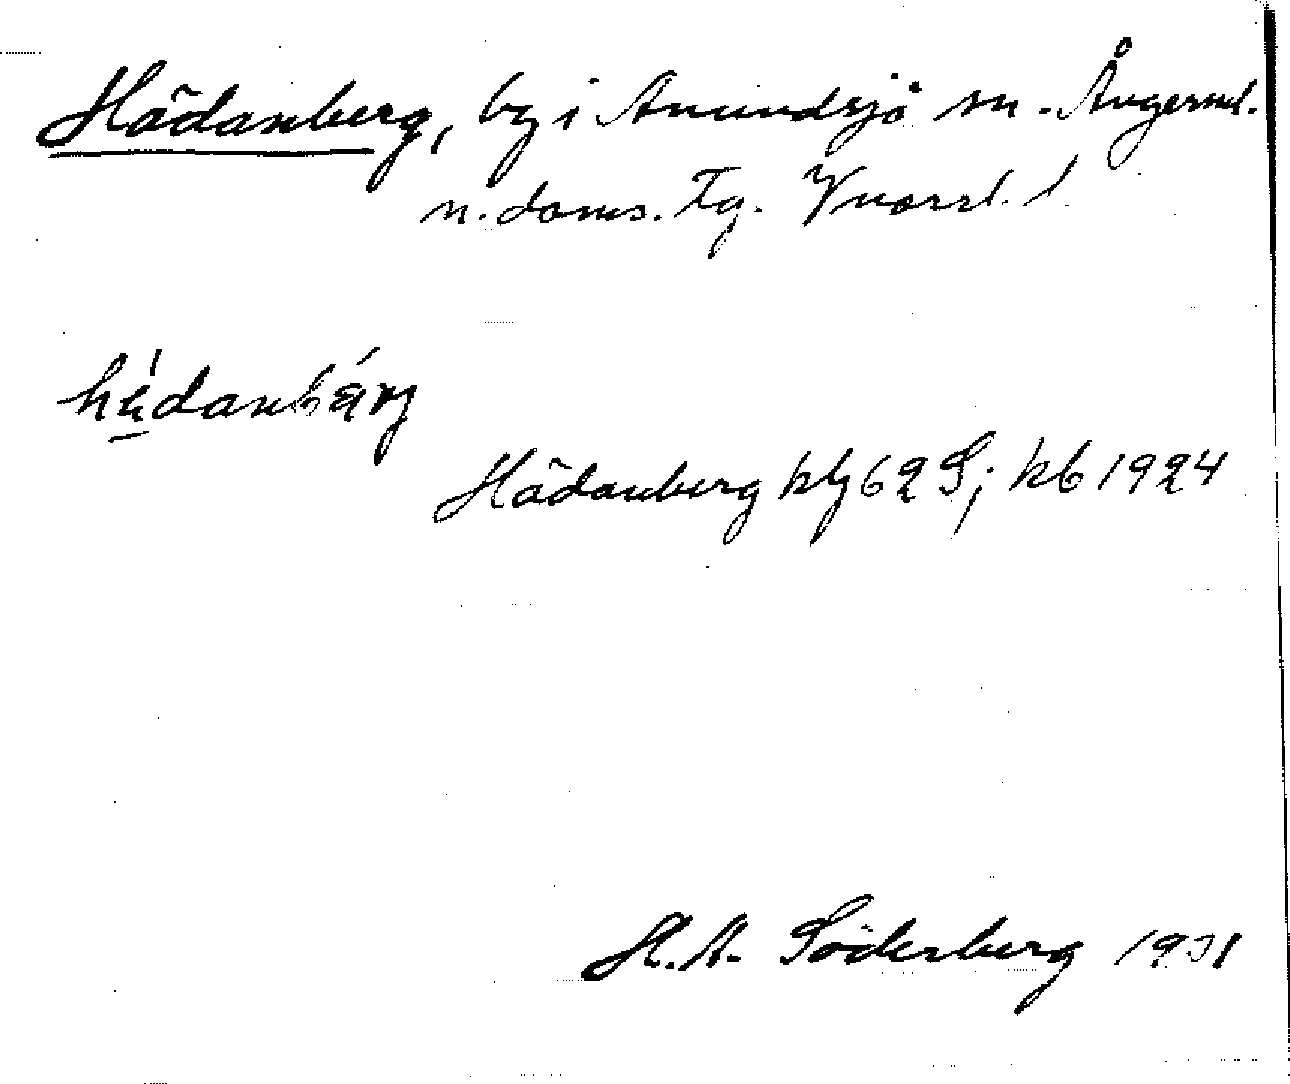 Hädanberg, by i Anundsjö sn. Ångerml.
n. doms. Tg. Vnorrl. l.
hä́danbärg
Hädanberg kbg 62 S; kb 1924
H. A. Söderberg 1931